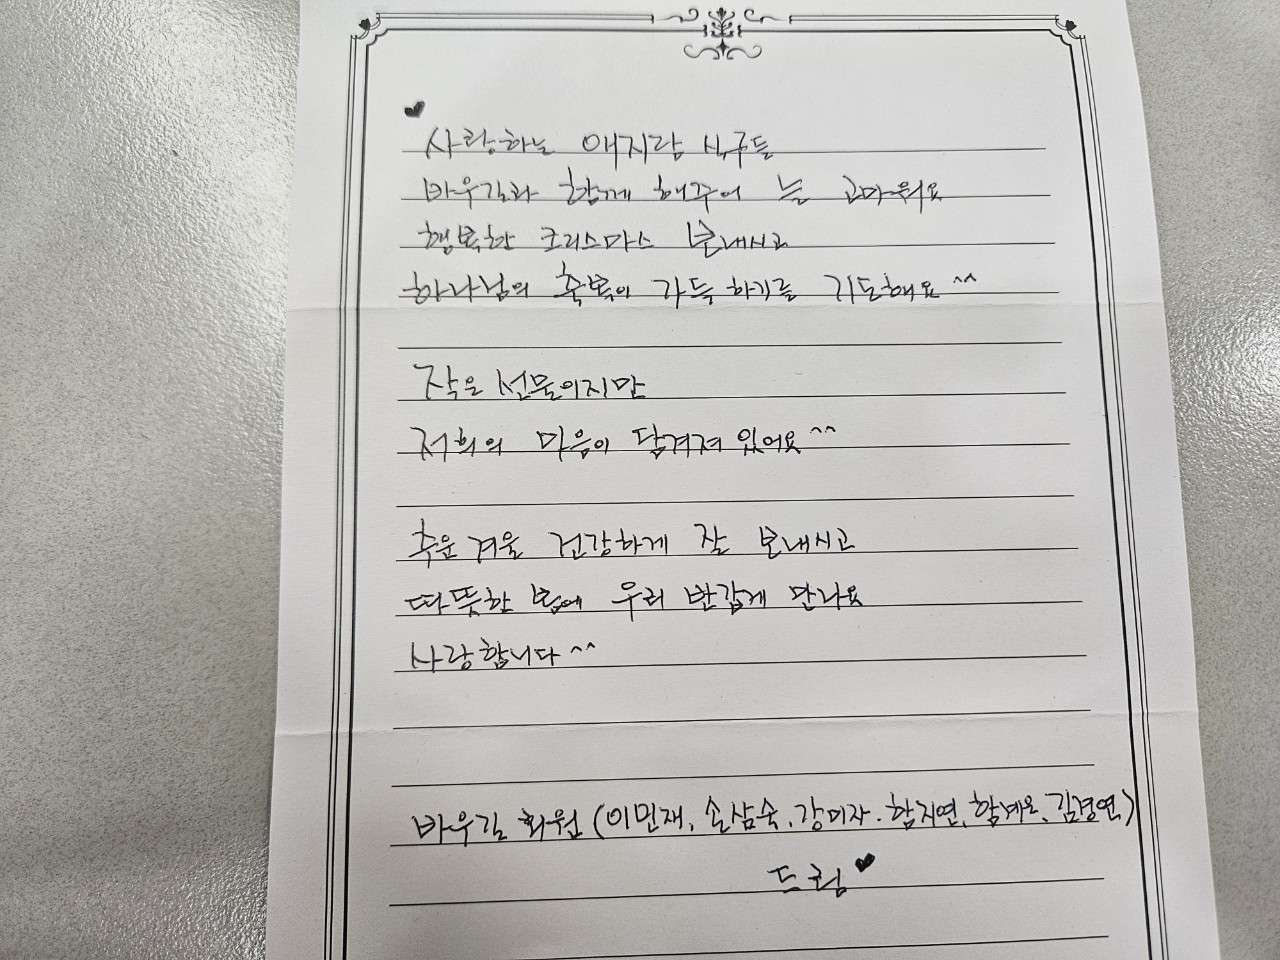 ♥
사랑하는 애지람 식구들
바우길과 함께 해주어 늘 고마워요
행복한 크리스마스 보내시고
하나님의 축복이 가득하기를 기도해요^^
작은 선물이지만
저희의 마음이 담겨져 있어요^^
추운 겨울 건강하게 잘 보내시고
따뜻한 봄에 우리 반갑게 만나요
사랑합니다^^
바우길 회원 (이민재, 손삼숙, 강미자. 함지연, 김경연)
드림♥